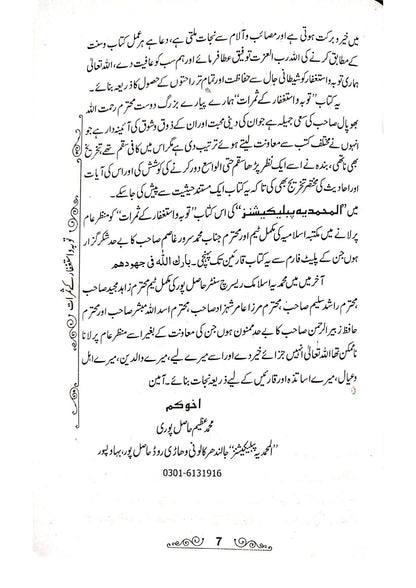 میں خیر و برکت ہوتی ہے اور مصائب و آلام سے نجات ملتی ہے، دعا ہے ہر عمل کتاب و سنت
کے مطابق کرنے کی اللہ رب العزت توفیق عطا فرمائے اور ہم سب کو عافیت دے، اللہ تعالیٰ
ہماری توبہ و استغفار کو شیطانی جال سے حفاظت اور تمام تر راحتوں کے حصول کا ذریعہ بنائے۔
یہ کتاب ”توبہ و استغفار کے ثمرات“ ہمارے پیارے بزرگ دوست محترم رحمت اللہ
بھوپال صاحب کی سعی جمیلہ ہے جو ان کی دینی محبت اور ان کے ذوق و شوق کی آئینہ دار ہے جو
انہوں نے مختلف کتب سے معاونت لیتے ہوئے ترتیب دی ہے مگر اس میں کافی سقم تھے تخریج
بھی نا تھی، بندہ نے اسے ایک نظر پڑھا سقم حتی الواسع دور کرنے کی کوشش کی اور اس کی آیات
اور احادیث کی مختصر تخریج بھی کی تاکہ یہ کتاب ایک مستند حیثیت سے پیش کی جا سکے۔
میں المحمدیہ پبلیکیشنز کی اس کتاب ”توبہ و استغفار کے ثمرات“ کو منظر عام
پر لانے میں مکتبہ اسلامیہ کی مکمل ٹیم اور محترم جناب محمد سرور عاصم صاحب کا بے حد شکر گزار
ہوں جن کے پلیٹ فارم سے یہ کتاب قارئین تک پہنچی۔ بارك الله في جهودهم
آخر میں میں محمدیہ اسلامک ریسرچ سنٹر حاصل پور کی مکمل ٹیم محترم زاہد مجید صاحب
محترم راشد سلیم صاحب، محترم مرزا عامر شہزاد صاحب، محترم اسد اللہ مبشر صاحب اور محترم
حافظ زبیر الرحمن صاحب کا بے حد ممنون ہوں جن کی معاونت کے بغیر اسے منظر عام پر لانا
ناممکن تھا اللہ تعالیٰ انہیں جزائے خیر دے اور اسے میرے لیے، میرے والدین، میرے اہل
و عیال، میرے اساتذہ اور قارئین کے لیے ذریعہ نجات بنائے۔ آمین
اخوکم
محمد عظیم حاصل پوری
”المحمدیہ پبلیکیشنز“ جالندھر کالونی وھاڑی روڈ حاصل پور، بہاولپور
0301-6131916
توبہ و استغفار کے ثمرات
7